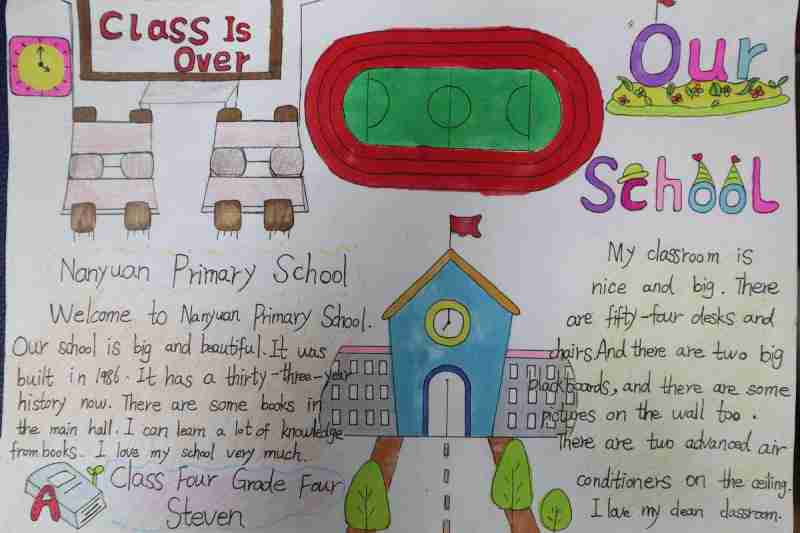 Class Is
Over
Our
School
Nanyuan Primary School
Welcome to Nanyuan Primary School.
Our school is big and beautiful. It was
built in 1986. It has a thirty-three-year
history now. There are some books in
the main hall. I can learn a lot of knowledge
from books. I love my school very much.
A
Class Four Grade Four
Steven
My classroom is
nice and big. There
are fifty-four desks and
chairs. And there are two big
blackboards, and there are some
pictures on the wall too.
There are two advanced air
conditioners on the ceiling.
I love my clean classroom.